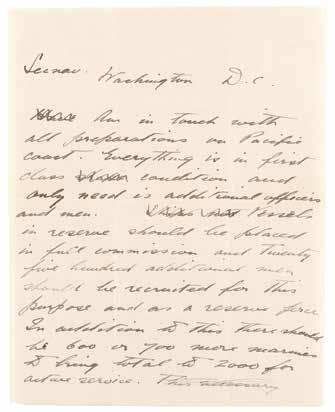 Secnav. Washington D.C.
Am in touch with
all preparations on Pacific
coast. Everything is in first
class condition and
only need is additional officers
and men. Vessels
in reserve should be placed
in full commission and twenty
five hundred additional men
should be recruited for this
purpose and as a reserve force.
In addition to this there should
be 600 or 700 more marines
to bring total to 2000 for
active service. This necessary